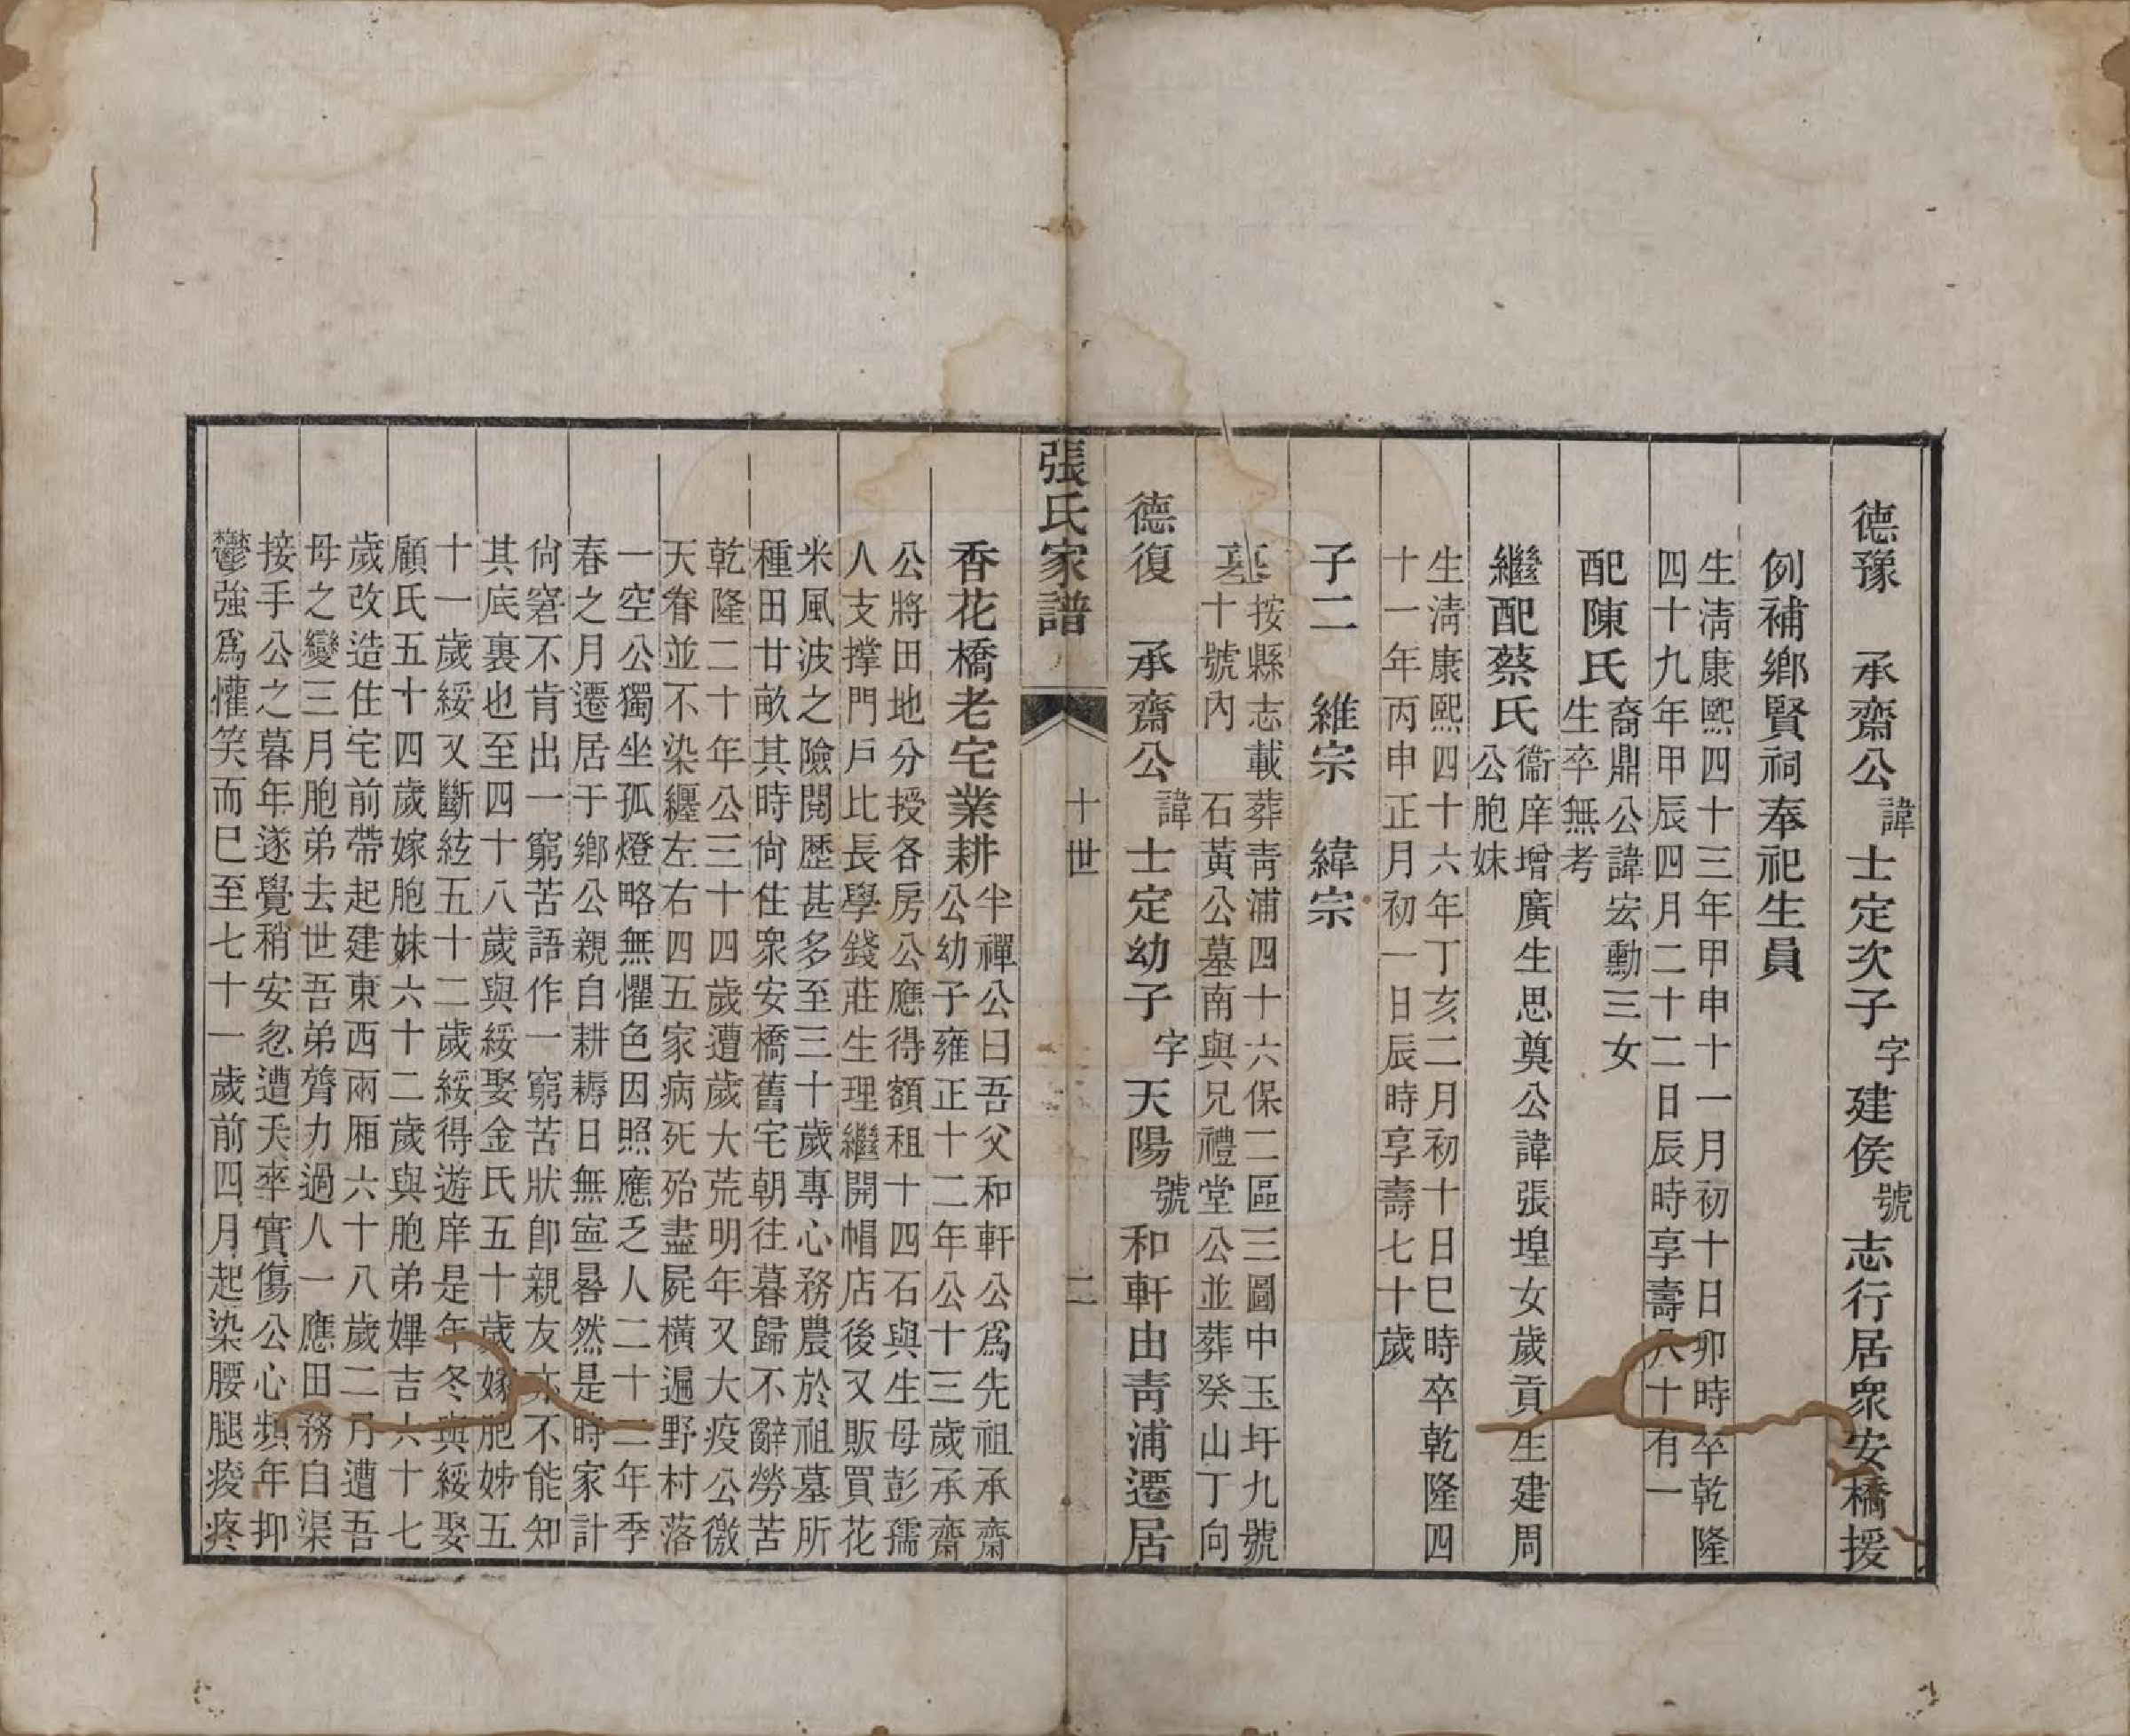 德豫　承齋公諱士定次子字建侯號志行居衆安橋援
例補鄉賢祠奉祀生員
生淸康熙四十三年甲申十一月初十日卯時卒乾隆
四十九年甲辰四月二十二日辰時享壽八十有一
配陳氏裔鼎公諱宏勳三女
生卒無考
繼配蔡氏衞庠增廣生思奠公諱張堭女歲貢生建周
公胞妹
生淸康熙四十六年丁亥二月初十日巳時卒乾隆四
十一年丙申正月初一日辰時享壽七十歲
子二　維宗　緯宗
墓按縣志載葬靑浦四十六保二區三圖中玉圩九號
十號內　石黃公墓南與兄禮堂公並葬癸山丁向
德復　承齋公諱士定幼子字天陽號和軒由靑浦遷居
張氏家譜　十世　二
香花橋老宅業耕半禪公曰吾父和軒公爲先祖承齋
公幼子雍正十二年公十三歲承齋
公將田地分授各房公應得額租十四石與生母彭孺
人支撑門戶比長學錢莊生理繼開帽店後又販買花
米風波之險閱歷甚多至三十歲專心務農於祖墓所
種田廿畝其時尙住衆安橋舊宅朝往暮歸不辭勞苦
乾隆二十年公三十四歲遭歲大荒明年又大疫公徼
天眷並不染纏左右四五家病死殆盡屍橫遍野村落
一空公獨坐孤燈略無懼色因照應乏人二十二年季
春之月遷居于鄉公親自耕耨日無寍晷然是時家計
尙窘不肯出一窮苦語作一窮苦狀卽親友亦不能知
其底裏也至四十八歲與綏娶金氏五十歲嫁胞姊五
十一歲綏又斷絃五十二歲綏得遊庠是年冬與綏娶
顧氏五十四歲嫁胞妹六十二歲與胞弟嬋吉六十七
歲改造住宅前帶起建東西兩厢六十八歲二月遭吾
母之變三月胞弟去世吾弟膂力過人一應田務自渠
接手公之暮年遂覺稍安忽遭夭卒實傷公心頻年抑
鬱強爲懽笑而巳至七十一歲前四月起染腰腿痠疼